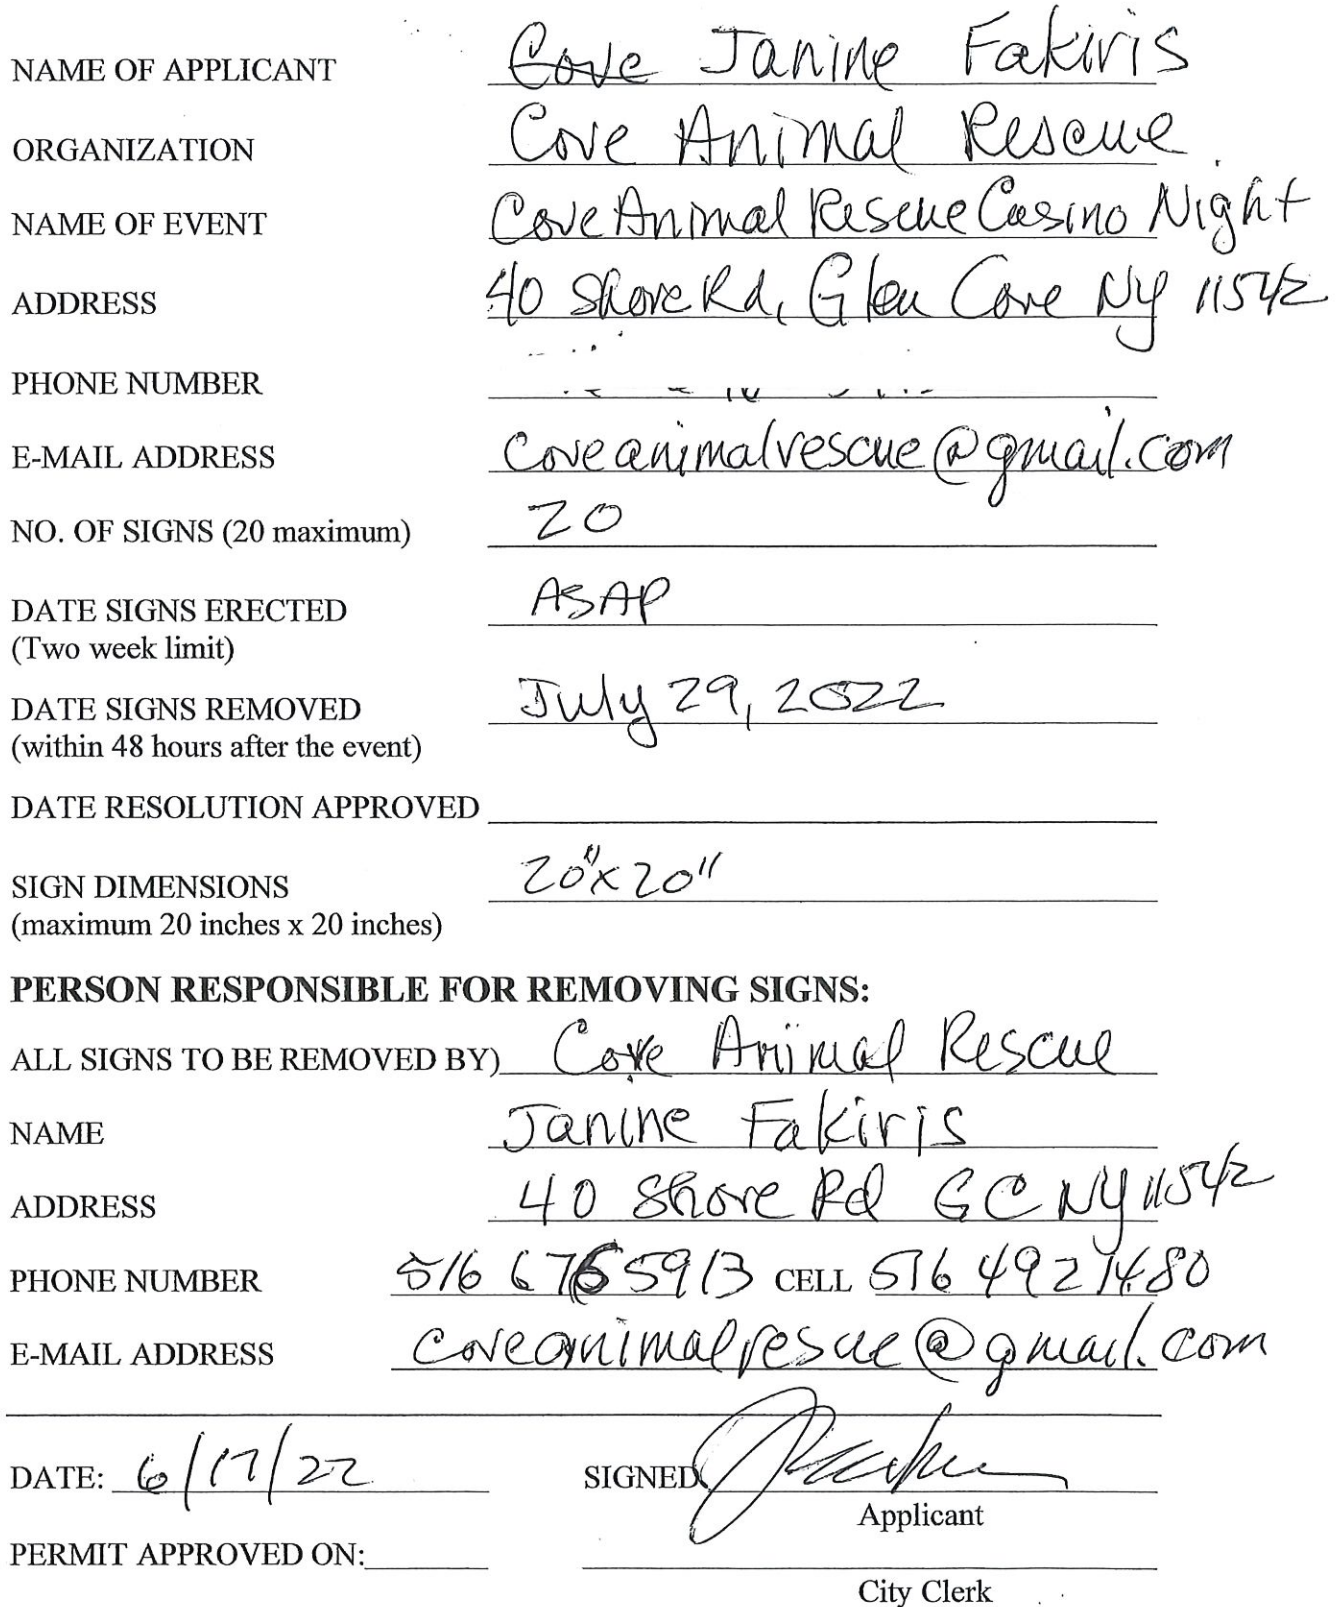 NAME OF APPLICANT Cove Janine Fakiris
ORGANIZATION Cove Animal Rescue
NAME OF EVENT Cove Animal Rescue Casino Night
ADDRESS 40 Shore Rd, Glen Cove NY 11542
PHONE NUMBER
E-MAIL ADDRESS coveanimalrescue@gmail.com
NO. OF SIGNS (20 maximum) 20
DATE SIGNS ERECTED ASAP
(Two week limit)
DATE SIGNS REMOVED July 29, 2022
(within 48 hours after the event)
DATE RESOLUTION APPROVED
SIGN DIMENSIONS 20"x20"
(maximum 20 inches x 20 inches)
PERSON RESPONSIBLE FOR REMOVING SIGNS:
ALL SIGNS TO BE REMOVED BY) Cove Animal Rescue
NAME Janine Fakiris
ADDRESS 40 Shore Rd GC NY 11542
PHONE NUMBER 516 676 5913 CELL 516 492 1480
E-MAIL ADDRESS coveanimalrescue@gmail.com
DATE: 6/17/22 SIGNED
Applicant
PERMIT APPROVED ON:
City Clerk